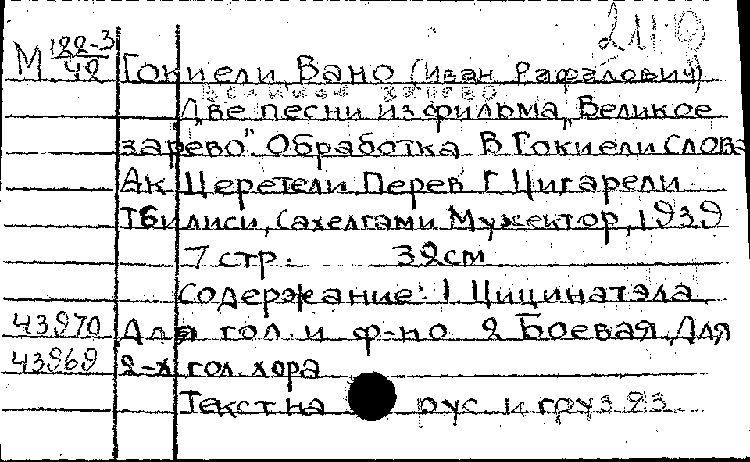 211.0
М 122-3/42 Гокиели, Вано (Иван Рафалович)
Великое зарево
Две песни из фильма „Великое
зарево". Обработка В. Гокиели Слова
Ак Церетели. Перев Г. Цигарели.
Тбилиси, Сахелгами Мужсектор, 1939
7 стр. 32см
Содержание: 1 Цицинатэла
43970 Для гол. и ф-но 2 Боевая. Для
43969 2-х гол. хора
Текст на рус. и груз яз.